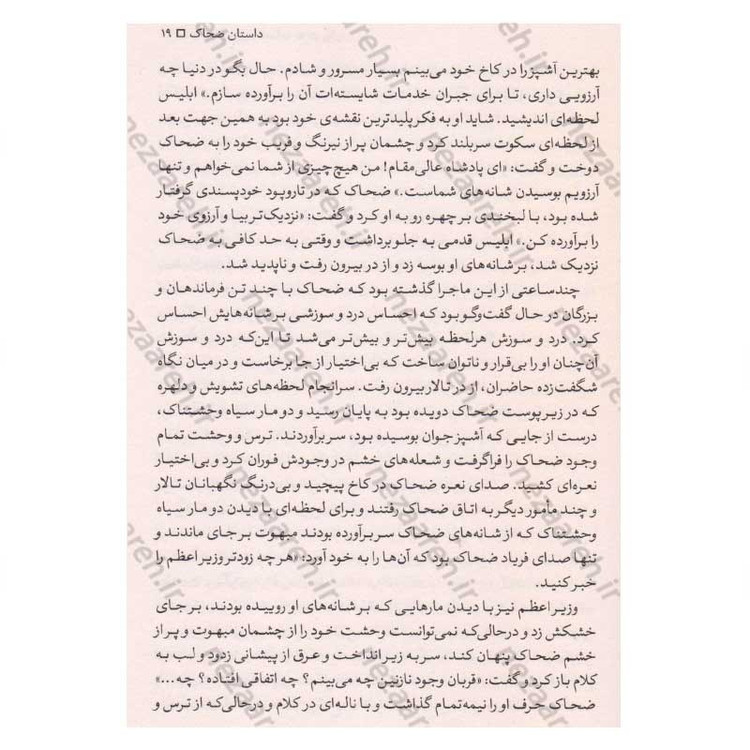 داستان ضحاک □ ۱۹
بهترین آشپز را در کاخ خود می‌بینم بسیار مسرور و شادم. حال بگو در دنیا چه
آرزویی داری، تا برای جبران خدمات شایسته‌ات آن را برآورده سازم.» ابلیس
لحظه‌ای اندیشید. شاید او به فکر پلیدترین نقشه‌ی خود بود به همین جهت بعد
از لحظه‌ای سکوت سر بلند کرد و چشمان پر از نیرنگ و فریب خود را به ضحاک
دوخت و گفت: «ای پادشاه عالی‌مقام! من هیچ چیزی از شما نمی‌خواهم و تنها
آرزویم بوسیدن شانه‌های شماست.» ضحاک که در تاروپود خودپسندی گرفتار
شده بود، با لبخندی بر چهره رو به او کرد و گفت: «نزدیک‌تر بیا و آرزوی خود
را برآورده کن.» ابلیس قدمی به جلو برداشت و وقتی به حد کافی به ضحاک
نزدیک شد، بر شانه‌های او بوسه زد و از در بیرون رفت و ناپدید شد.
چند ساعتی از این ماجرا گذشته بود که ضحاک با چند تن فرماندهان و
بزرگان در حال گفت‌وگو بود که احساس درد و سوزشی بر شانه‌هایش احساس
کرد. درد و سوزش هر لحظه بیش‌تر و بیش‌تر می‌شد تا این‌که درد و سوزش
آن‌چنان او را بی‌قرار و ناتوان ساخت که بی‌اختیار از جا برخاست و در میان نگاه
شگفت‌زده حاضران، از در تالار بیرون رفت. سرانجام لحظه‌های تشویش و دلهره
که در زیر پوست ضحاک دویده بود به پایان رسید و دو مار سیاه وحشتناک،
درست از جایی که آشپز جوان بوسیده بود، سر برآوردند. ترس و وحشت تمام
وجود ضحاک را فراگرفت و شعله‌های خشم در وجودش فوران کرد و بی‌اختیار
نعره‌ای کشید. صدای نعره ضحاک در کاخ پیچید و بی‌درنگ نگهبانان تالار
و چند مأمور دیگر به اتاق ضحاک رفتند و برای لحظه‌ای با دیدن دو مار سیاه
وحشتناک که از شانه‌های ضحاک سر برآورده بودند مبهوت بر جای ماندند و
تنها صدای فریاد ضحاک بود که آن‌ها را به خود آورد: «هر چه زودتر وزیر اعظم را
خبر کنید.
وزیر اعظم نیز با دیدن مارهایی که بر شانه‌های او روییده بودند، بر جای
خشکش زد و درحالی‌که نمی‌توانست وحشت خود را از چشمان مبهوت و پر از
خشم ضحاک پنهان کند، سر به زیر انداخت و عرق از پیشانی زدود و لب به
کلام باز کرد و گفت: «قربان وجود نازنین چه می‌بینم؟ چه اتفاقی افتاده؟ چه...»
ضحاک حرف او را نیمه‌تمام گذاشت و با ناله‌ای در کلام و درحالی‌که از ترس و
nezaareh.ir